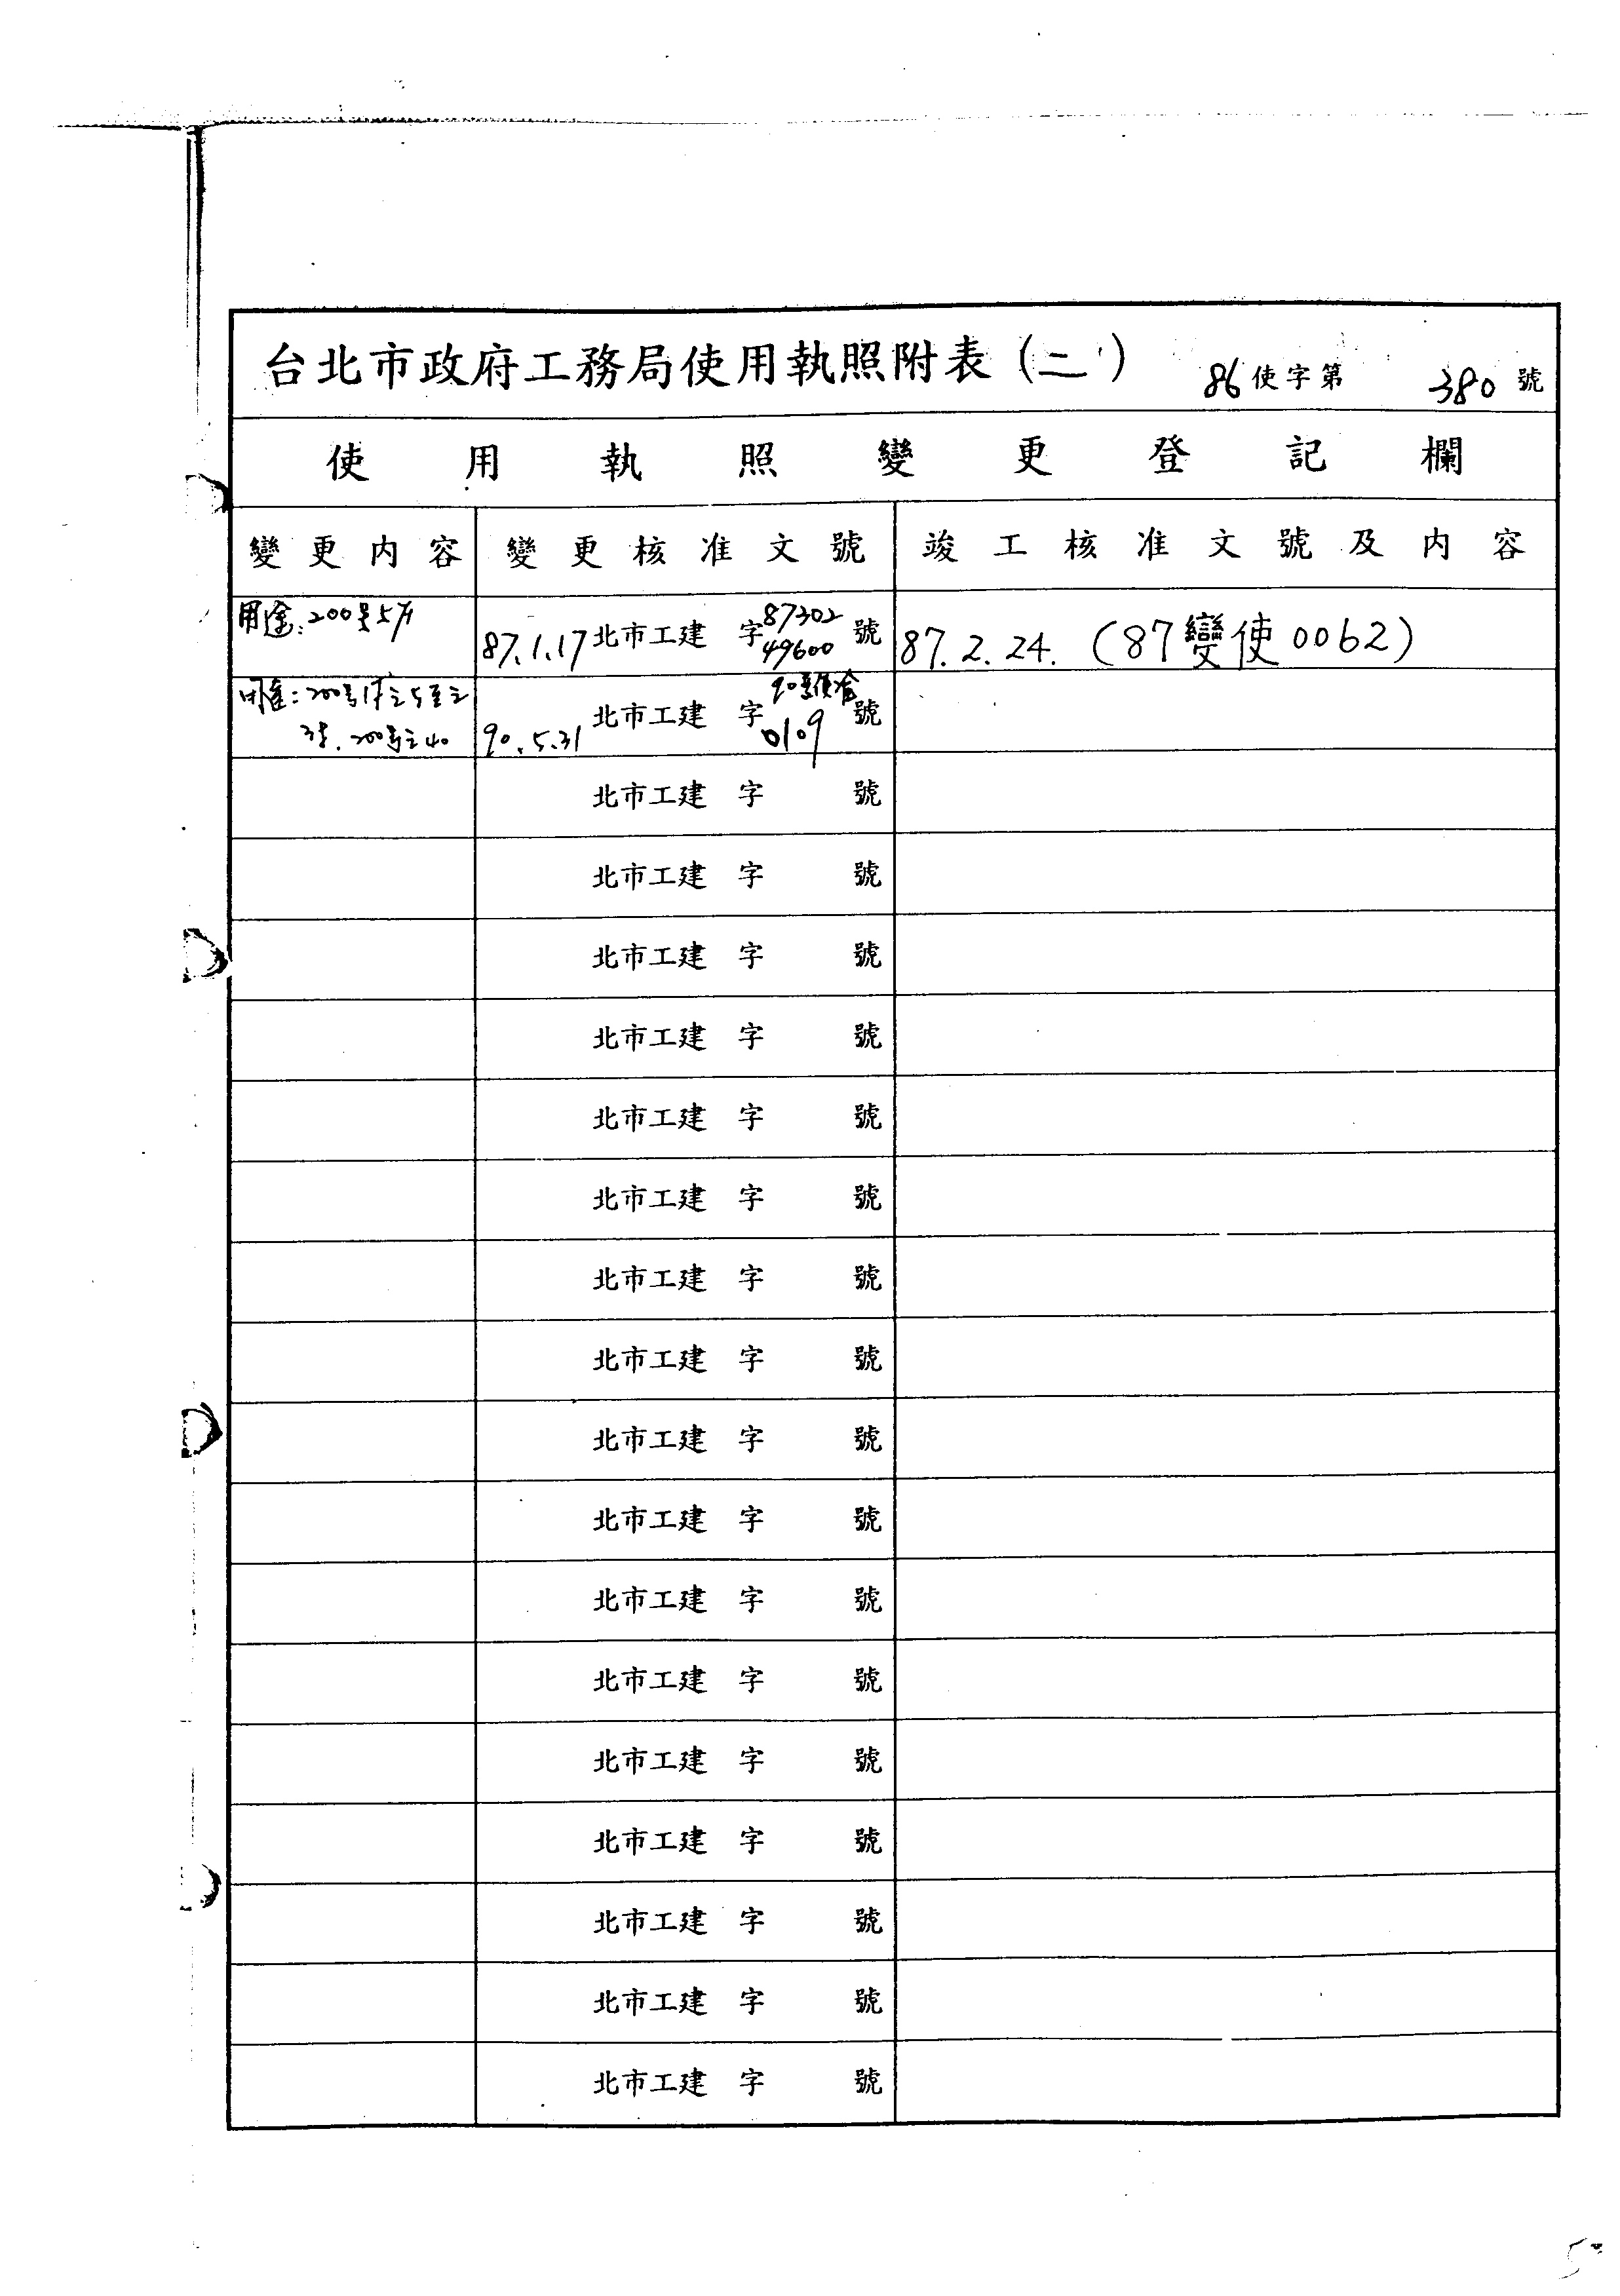 台北市政府工務局使用執照附表(二) 86使字第 380 號
使用執照變更登記欄
變更內容 變更核准文號 竣工核准文號及內容
用途:200號5F 87.1.17 北市工建 字 87302 49600 號 87.2.24. (87變使0062)
200號1F之5至之
北市工建 字 號
38.200號之40 90.5.31 0109
北市工建 字 號
北市工建 字 號
北市工建 字 號
北市工建 字 號
北市工建 字 號
北市工建 字 號
北市工建 字 號
北市工建 字 號
北市工建 字 號
北市工建 字 號
北市工建 字 號
北市工建 字 號
北市工建 字 號
北市工建 字 號
北市工建 字 號
北市工建 字 號
北市工建 字 號